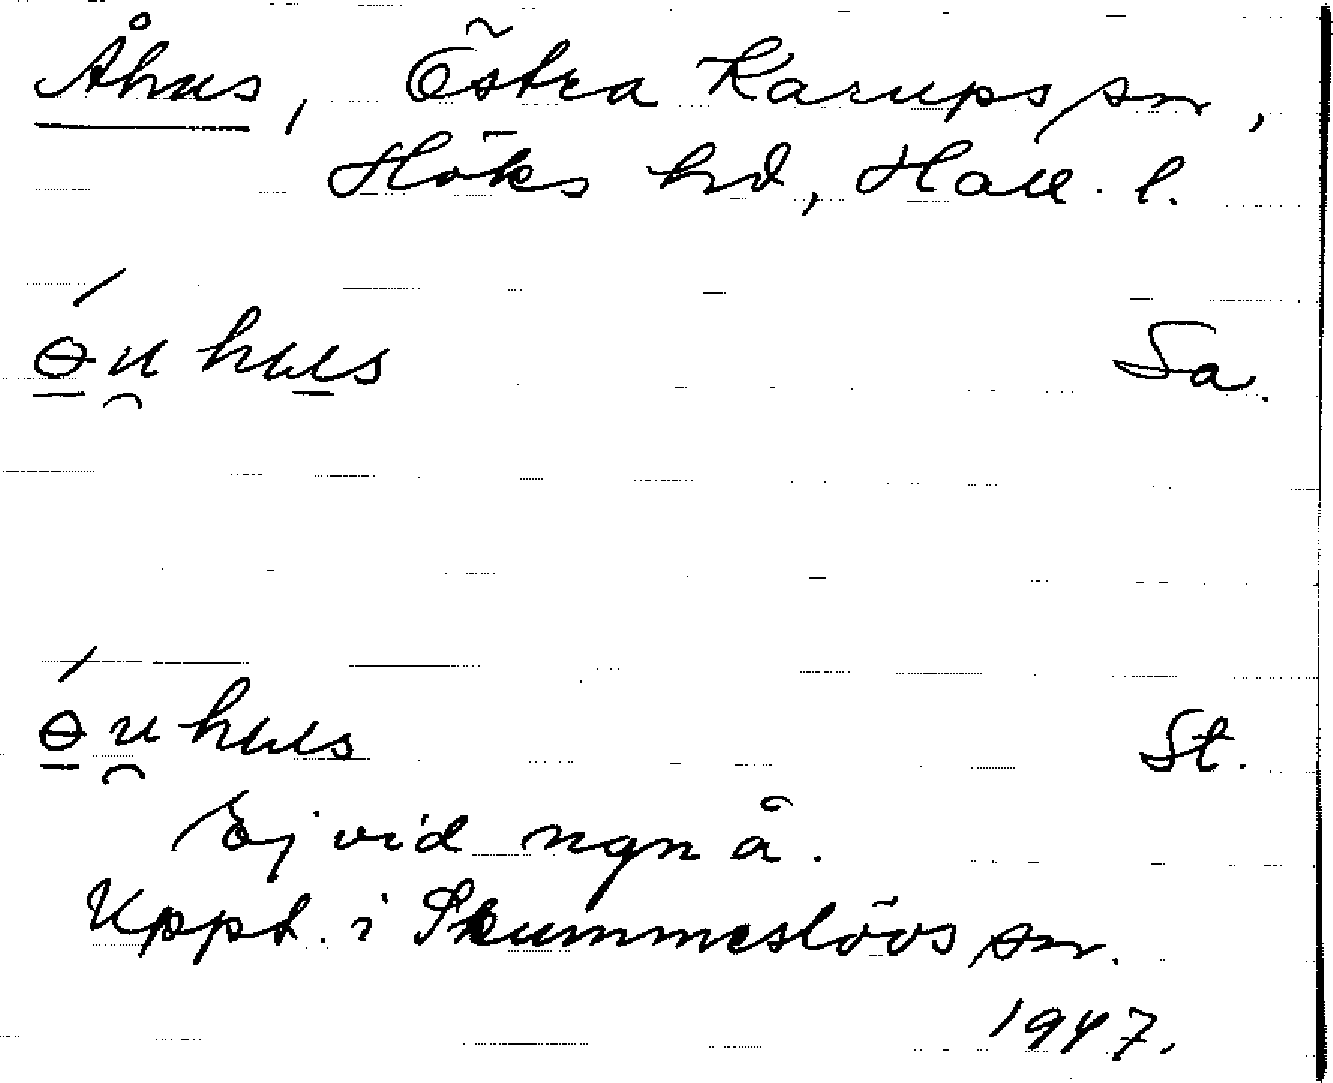 Åhus, Östra Karups sn,
Höks hd, Hall. l.
ɵ́u̯ hus Sa.
ɵ́u̯hus St.
Ej vid ngn å.
Uppt. i Skummeslövs sn.
1947.